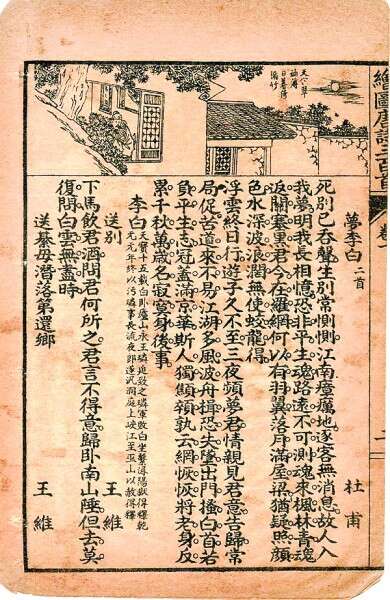 繪圖唐詩三百首
卷一
二
天寒翠
袖薄
日暮倚
修竹
夢李白 二首 杜甫
死別已吞聲生別常惻惻江南瘴癘地逐客無消息故人入
我夢明我長相憶恐非平生魂路遠不可測魂來楓林青魂
返關塞黑君今在羅網何以有羽翼落月滿屋梁猶疑照顏
色水深波浪闊無使蛟龍得
浮雲終日行遊子久不至三夜頻夢君情親見君意告歸常
局促苦道來不易江湖多風波舟楫恐失墜出門搔白首若
負平生志冠蓋滿京華斯人獨顦顇孰云網恢恢將老身反
累千秋萬歲名寂寞身後事
李白 天寶十五載白臥廬山永王璘迫致之璘軍敗白坐繫潯陽獄得釋乾
元元年終以污璘事長流夜郎遂泛洞庭上峽江至巫山以赦得釋
送別 王維
下馬飲君酒問君何所之君言不得意歸臥南山陲但去莫
復問白雲無盡時
送綦毋潛落第還鄉 王維